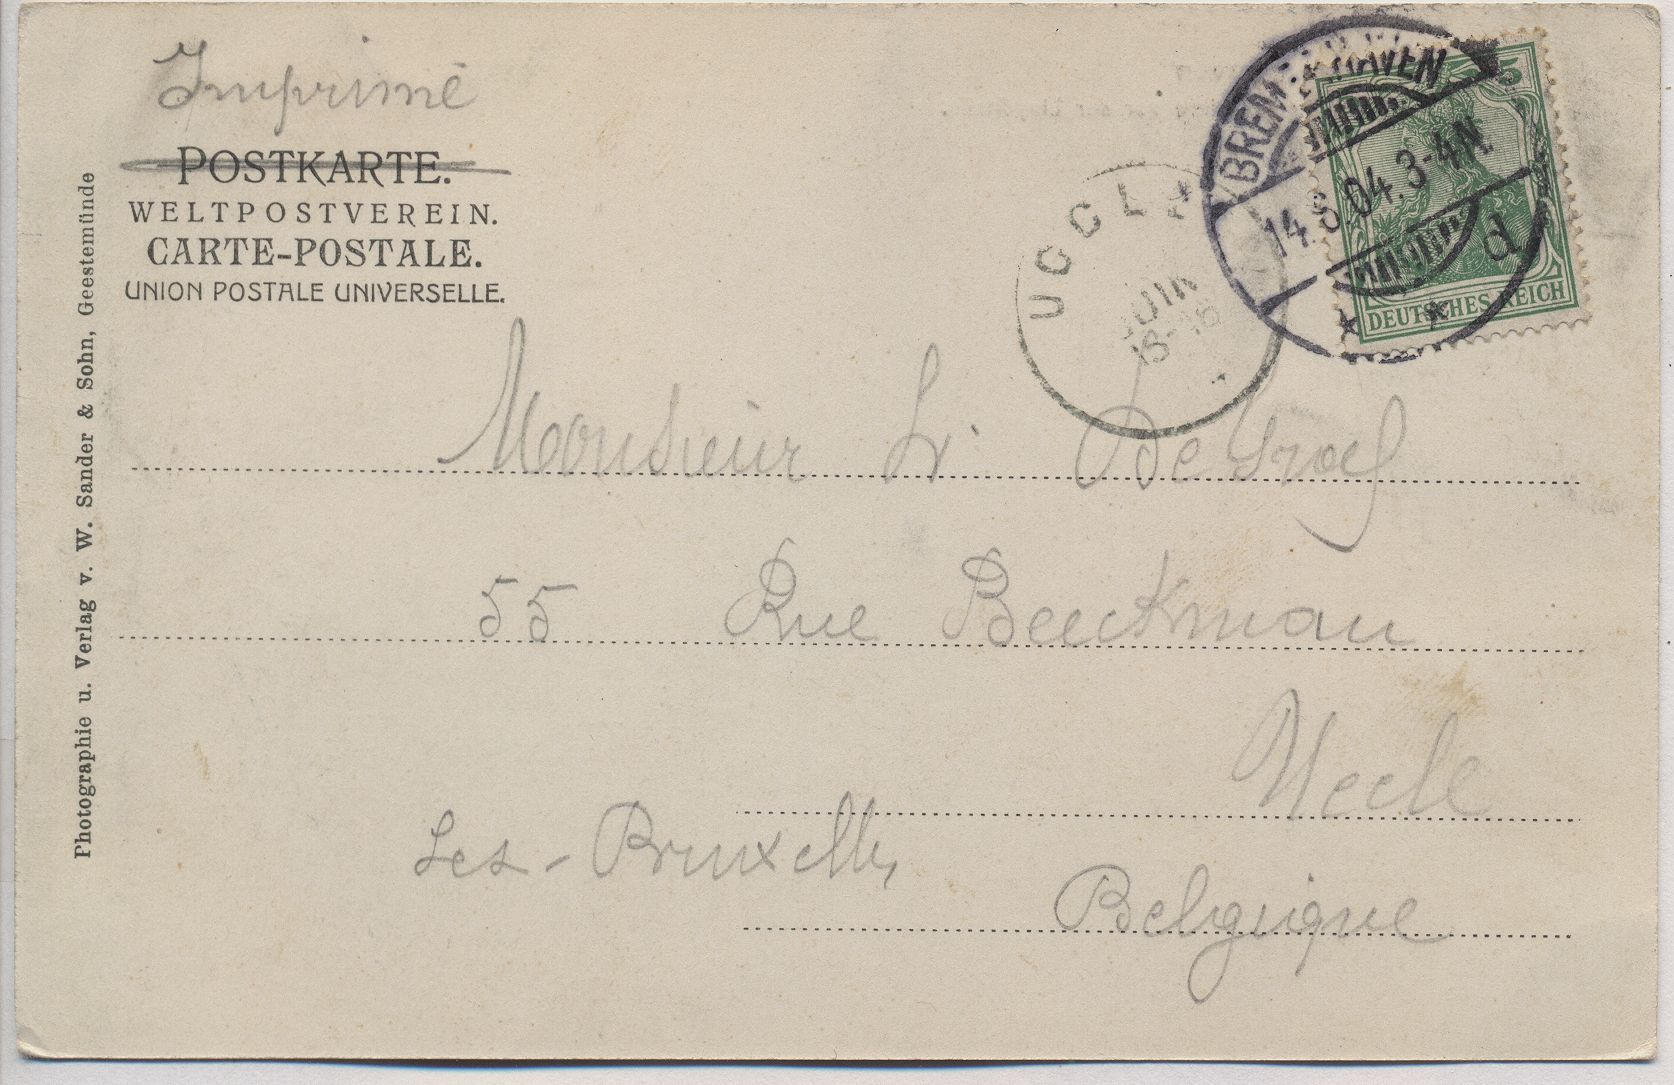 Imprimé
POSTKARTE.
WELTPOSTVEREIN.
CARTE-POSTALE.
UNION POSTALE UNIVERSELLE.
Photographie u. Verlag v. W. Sander & Sohn, Geestemünde
BREMERHAVEN
14.6.04. 3-4N.
d
* *
5
DEUTSCHES REICH
UCCLE
JUIN
Monsieur Fr. De Graef
55 Rue Beeckman
Uccle
Lez-Bruxelles
Belgique